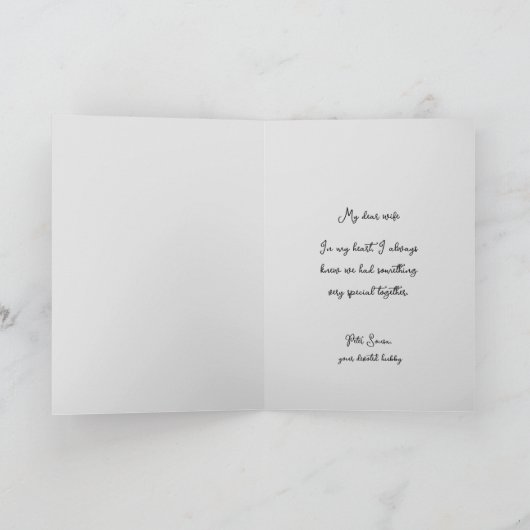 My dear wife
In my heart, I always
knew we had something
very special together.
Peter Sousa,
your devoted hubby